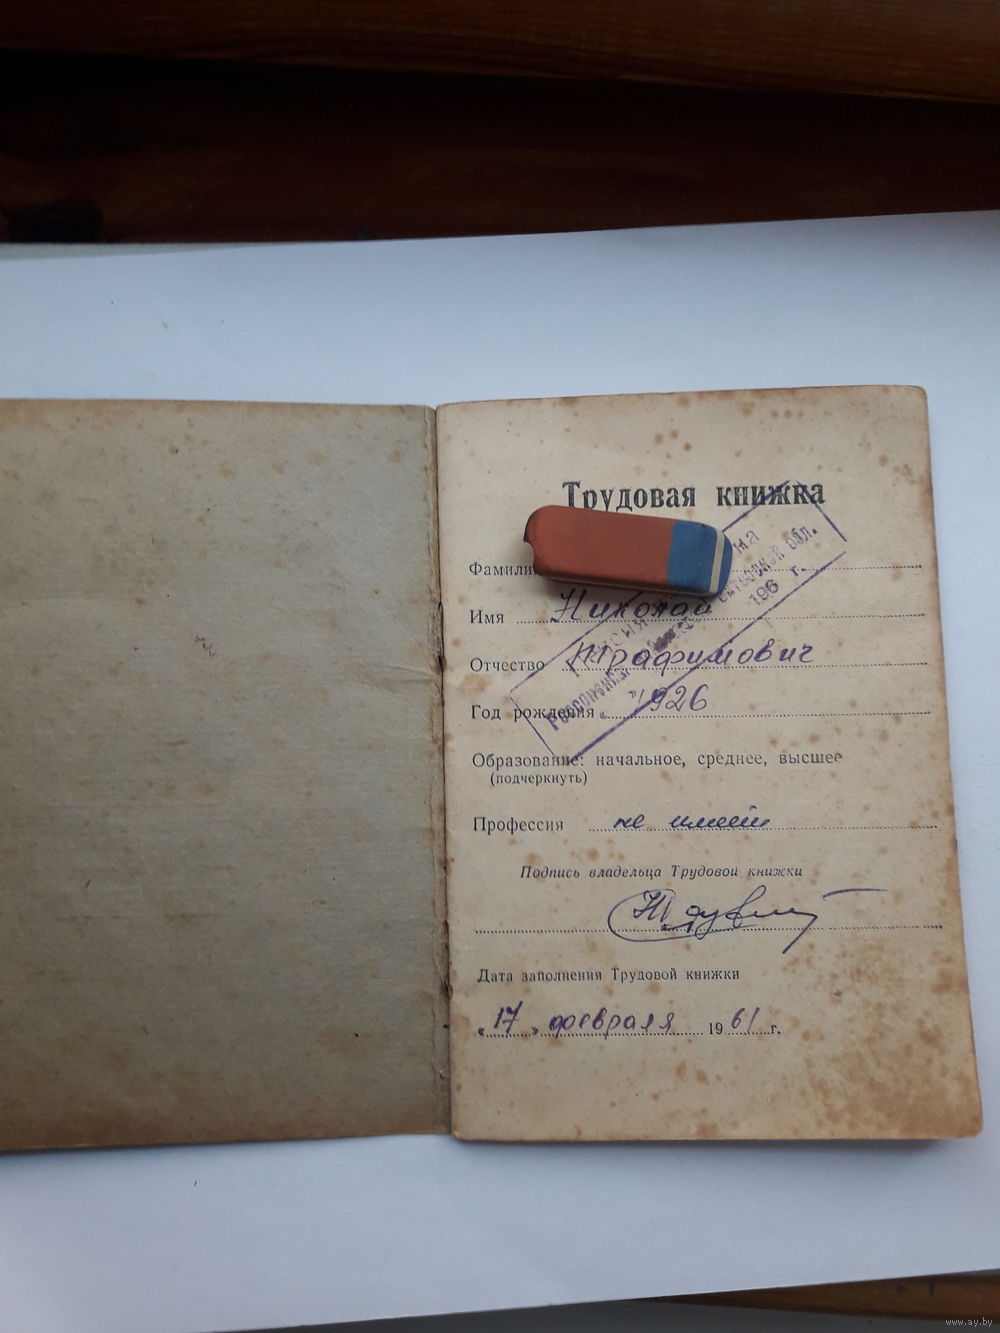 Трудовая книжка
Фамили
Имя Николай
Отчество Трафимович
Год рождения 1926
на
обл.
196 г.
Образование: начальное, среднее, высшее
(подчеркнуть)
Профессия не имеет
Подпись владельца Трудовой книжки
Дата заполнения Трудовой книжки
« 17 » февраля 1961 г.
www.ay.by